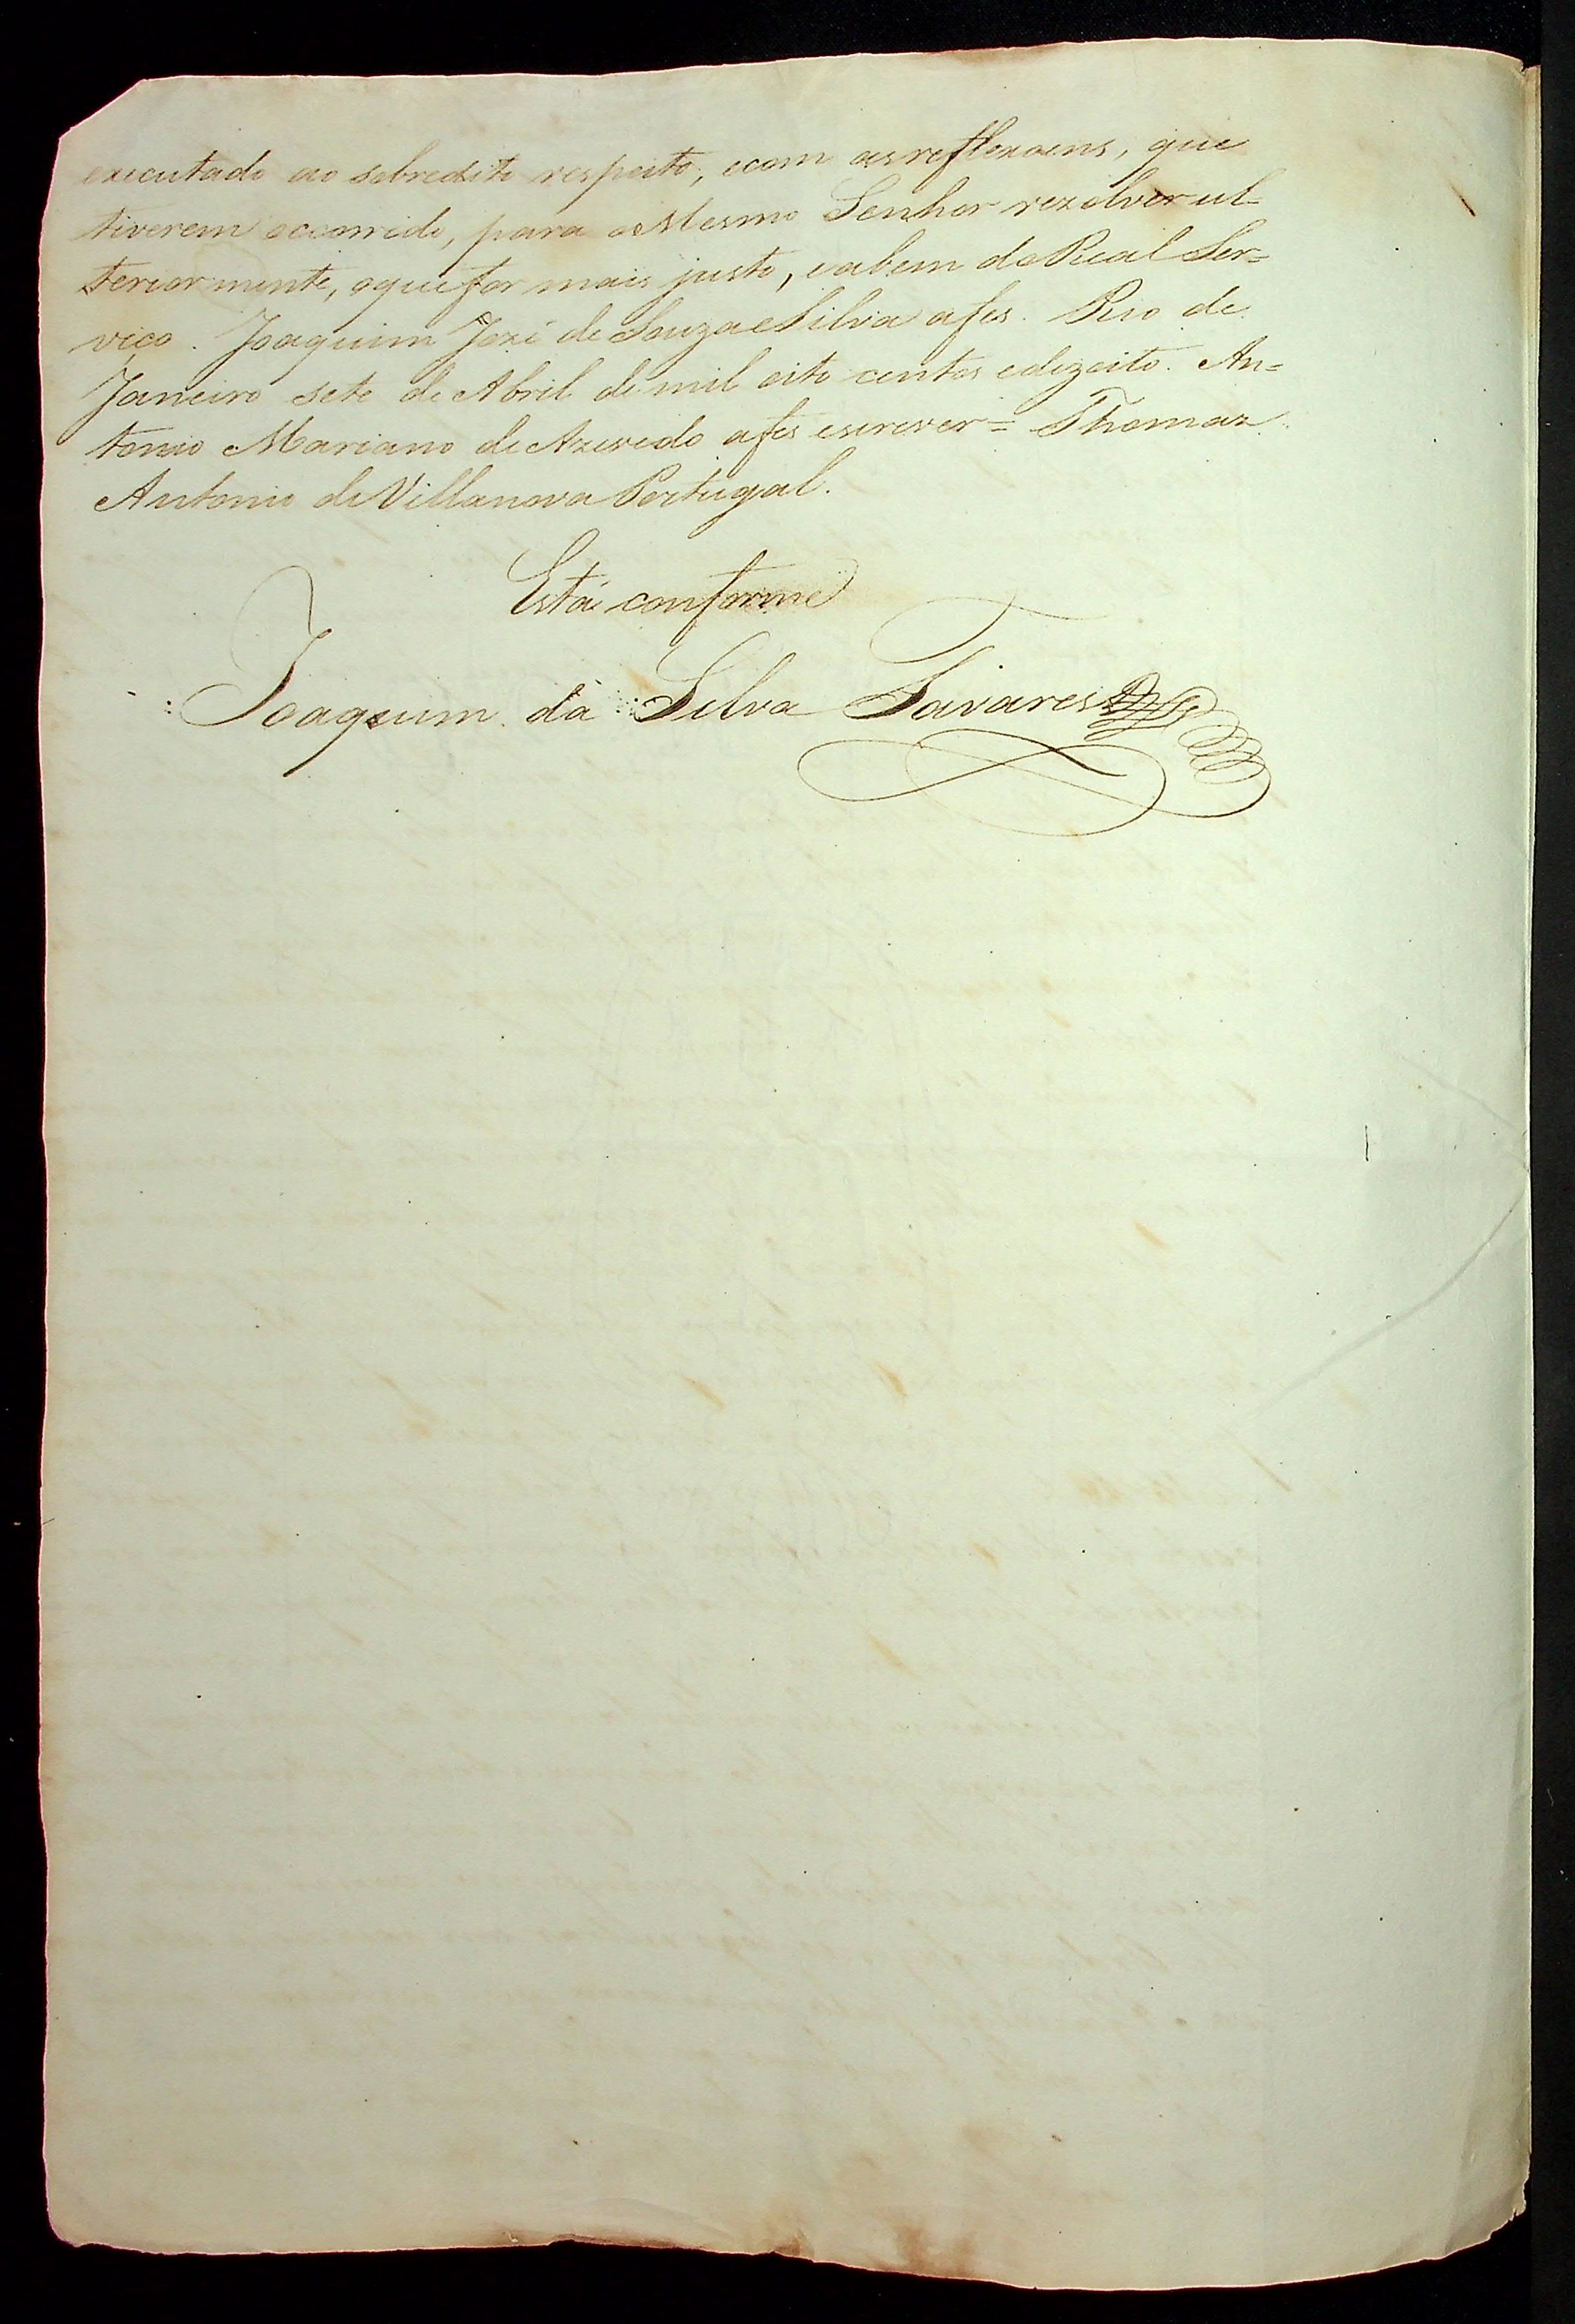 executado ao sobredito respeito, ecom asreflexoens, que
tiverem occorrido, para oMesmo Senhor rezolver ul=
teriormente, oquefor mais justo, eabem doReal Ser=
viço. Joaquim Jozé de SouzaeSilva afes. Rio de
Janeiro sete de Abril de mil oito centos edezoito. An=
tonio Mariano deAzevedo afes escrever= Thomaz
Antonio deVillanova Portugal.
Está conforme
Joaquim da Silva Tavares